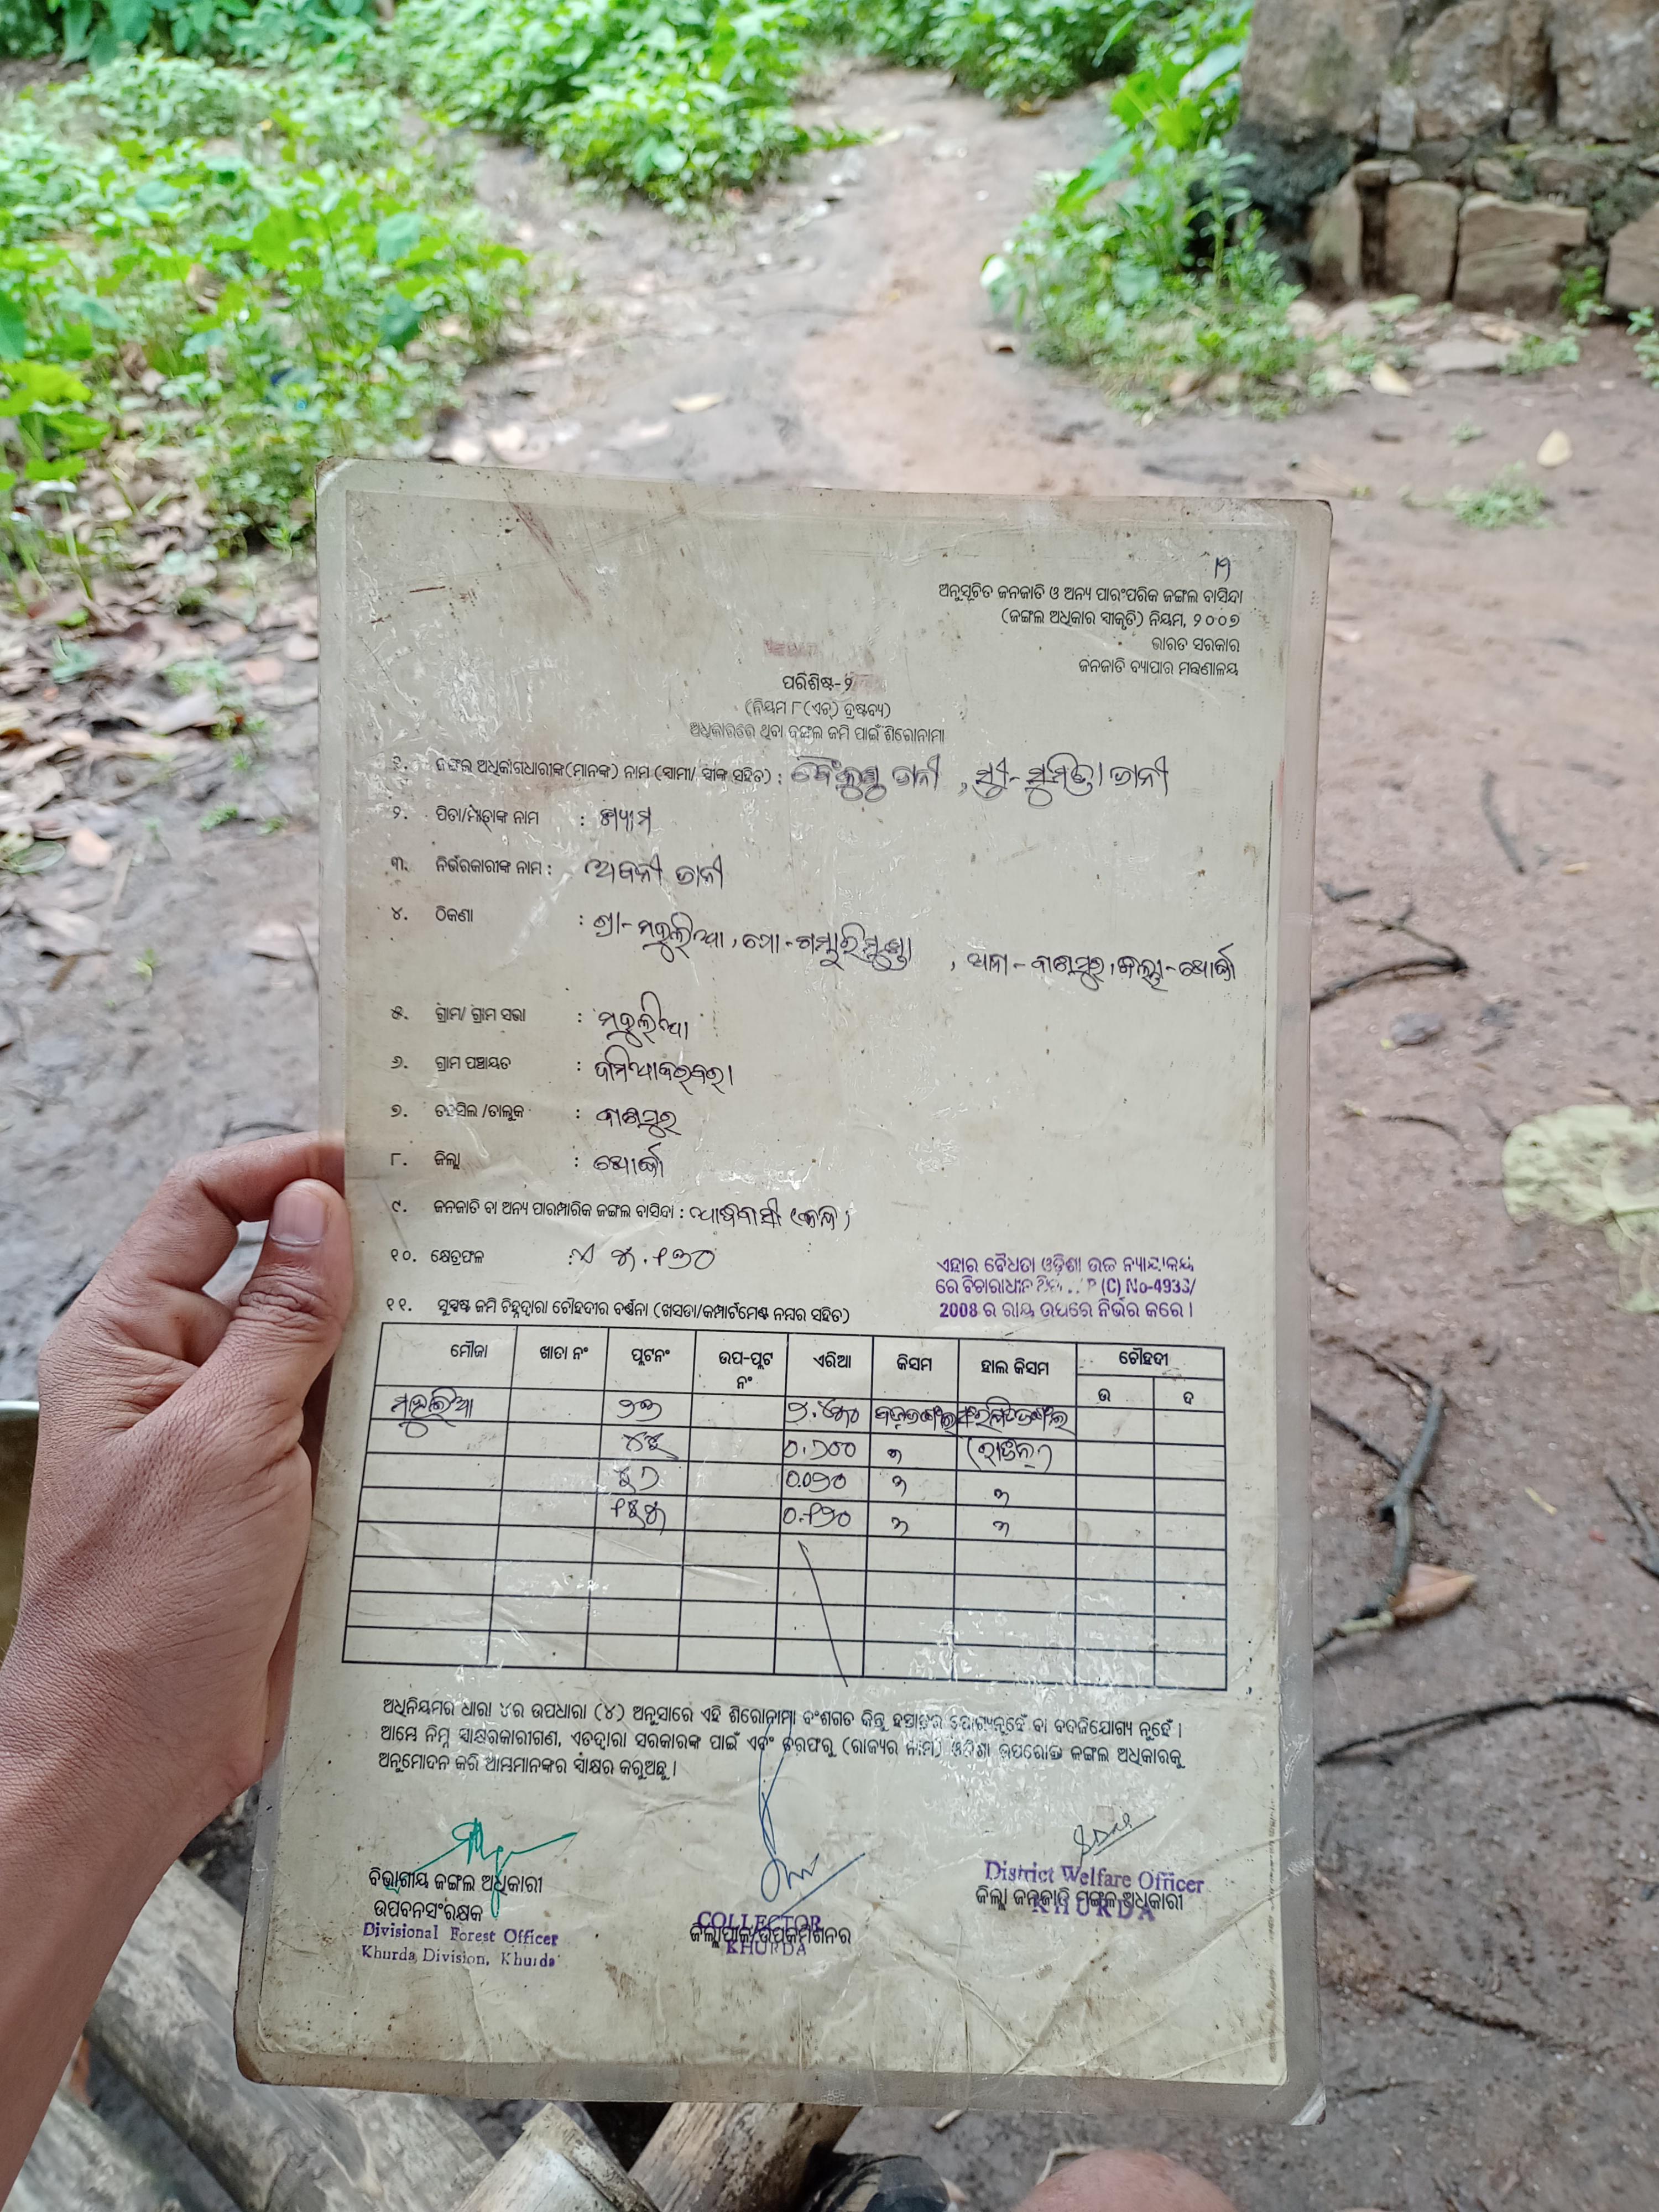 ୧୨
ଅନୁସୂଚିତ ଜନଜାତି ଓ ଅନ୍ୟ ପାରଂପରିକ ଜଙ୍ଗଲ ବାସିନ୍ଦା
(ଜଙ୍ଗଲ ଅଧିକାର ସ୍ୱୀକୃତି) ନିୟମ, ୨୦୦୭
ଭାରତ ସରକାର
ଜନଜାତି ବ୍ୟାପାର ମନ୍ତ୍ରଣାଳୟ
ପରିଶିଷ୍ଟ-୨
(ନିୟମ ୮(ଏଚ୍) ଦ୍ରଷ୍ଟବ୍ୟ)
ଅଧିକାରରେ ଥିବା ଜଙ୍ଗଲ ଜମି ପାଇଁ ଶିରୋନାମା
୧. ଜଙ୍ଗଲ ଅଧିକାରଧାରୀଙ୍କ(ମାନଙ୍କ) ନାମ (ସ୍ୱାମୀ/ ସ୍ତ୍ରୀଙ୍କ ସହିତ) : ବୈକୁଣ୍ଠ ଜାନୀ , ସ୍ତ୍ରୀ- ସୁମିତ୍ରା ଜାନୀ
୨. ପିତା/ମାତାଙ୍କ ନାମ : ଶ୍ୟାମ
୩. ନିର୍ଭରକାରୀଙ୍କ ନାମ : ଅବନୀ ଜାନୀ
୪. ଠିକଣା : ଗ୍ରା- ମହୁଲିଆ, ପୋ- ଗମ୍ଭାରିମୁଣ୍ଡା , ଥାନା- ବାଣପୁର, ଜିଲ୍ଲା- ଖୋର୍ଦ୍ଧା
୫. ଗ୍ରାମ/ ଗ୍ରାମ ସଭା : ମହୁଲିଆ
୬. ଗ୍ରାମ ପଞ୍ଚାୟତ :
୭. ତହସିଲ /ତାଲୁକ : ବାଣପୁର
୮. ଜିଲ୍ଲା : ଖୋର୍ଦ୍ଧା
୯. ଜନଜାତି ବା ଅନ୍ୟ ପାରମ୍ପାରିକ ଜଙ୍ଗଲ ବାସିନ୍ଦା : ଆଦିବାସୀ
୧୦. କ୍ଷେତ୍ରଫଳ :
ଏହାର ବୈଧତା ଓଡ଼ିଶା ଉଚ୍ଚ ନ୍ୟାୟାଳୟ
ରେ ବିଚାରାଧୀନ (C) No-4933/
2008 ର ରାୟ ଉପରେ ନିର୍ଭର କରେ ।
୧୧. ସୁସ୍ପଷ୍ଟ ଜମି ଚିହ୍ନଦ୍ୱାରା ଚୌହଦୀର ବର୍ଣ୍ଣନା (ଖସଡା/କମ୍ପାର୍ଟମେଣ୍ଟ ନମ୍ବର ସହିତ)
ମୌଜା ଖାତା ନଂ ପ୍ଲଟନଂ ଉପ-ପ୍ଲଟ ନଂ ଏରିଆ କିସମ ହାଲ କିସମ ଚୌହଦୀ
ଉ ଦ
ମହୁଲିଆ
ଅଧିନିୟମର ଧାରା ୪ର ଉପଧାରା (୪) ଅନୁସାରେ ଏହି ଶିରୋନାମା ବଂଶଗତ କିନ୍ତୁ ହସ୍ତାନ୍ତର ଯୋଗ୍ୟନୁହେଁ ବା ବଦଳିଯୋଗ୍ୟ ନୁହେଁ ।
ଆମ୍ଭେ ନିମ୍ନ ସାକ୍ଷରକାରୀଗଣ, ଏତଦ୍ୱାରା ସରକାରଙ୍କ ପାଇଁ ଏବଂ ତରଫରୁ (ରାଜ୍ୟର ନାମ) ଓଡିଶା ଉପରୋକ୍ତ ଜଙ୍ଗଲ ଅଧିକାରକୁ
ଅନୁମୋଦନ କରି ଆମ୍ଭମାନଙ୍କର ସାକ୍ଷର କରୁଅଛୁ ।
ବିଭାଗୀୟ ଜଙ୍ଗଲ ଅଧିକାରୀ
ଉପବନସଂରକ୍ଷକ
Divisional Forest Officer
Khurda Division, Khurda
COLLECTOR
ଜିଲ୍ଲାପାଳ/ଉପକମିଶନର
KHURDA
District Welfare Officer
ଜିଲ୍ଲା ଜନଜାତି ମଙ୍ଗଳ ଅଧିକାରୀ
KHURDA